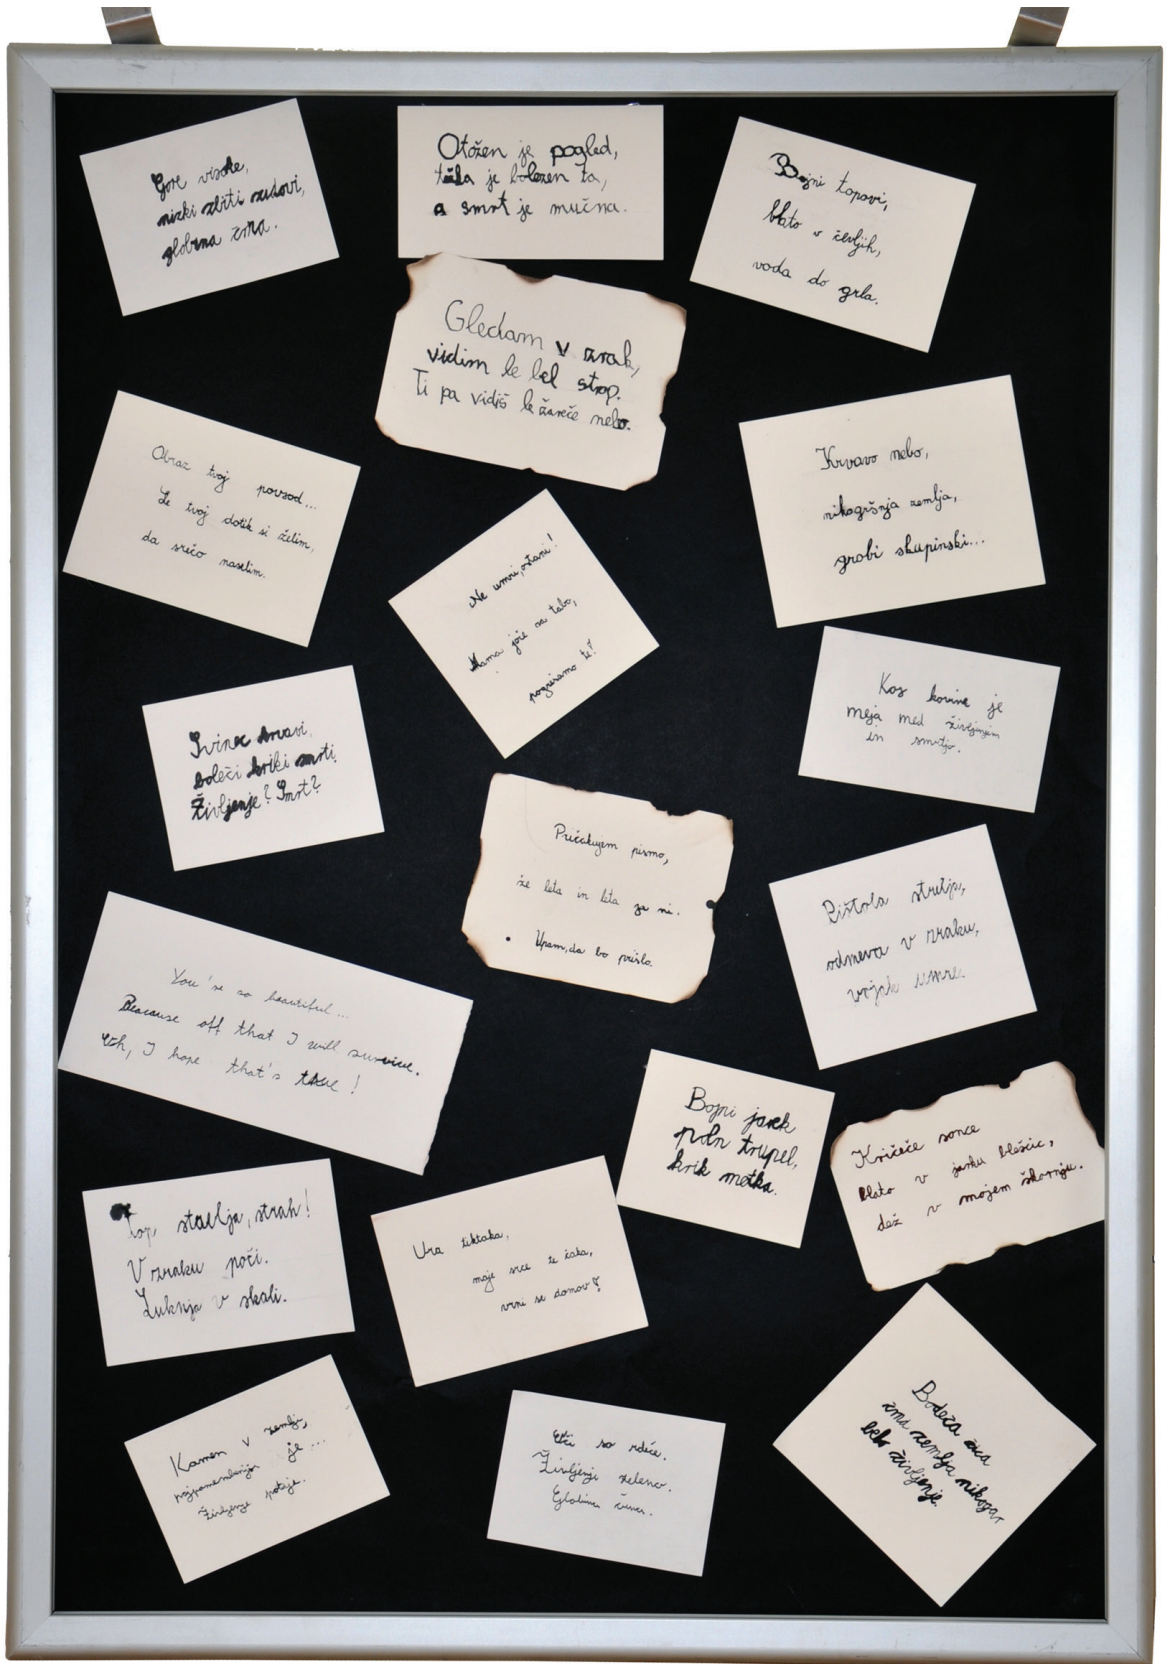 Gore visoke,
nizki zbiti zidovi,
globina črna.
Otožen je pogled,
težka je bolezen ta,
a smrt je mučna.
Bojni topovi,
blato v čevljih,
voda do grla.
Gledam v zrak,
vidim le bel strop.
Ti pa vidiš le žareče nebo.
Obraz tvoj povsod...
Le tvoj dotik si želim,
da srečo naselim.
Krvavo nebo,
nikogršnja zemlja,
grobi skupinski...
Ne umri, ostani!
Mama joče za tabo,
pogrešamo te!
Kos kovine je
meja med življenjem
in smrtjo.
Svinec krvavi,
boleči kriki smrti.
Življenje? Smrt?
Pričakujem pismo,
že leta in leta ga ni.
Upam, da bo prišlo.
Pištola strelja,
odmeva v zraku,
vojak umre.
You're so beautiful...
Because off that I will survive.
I hope that's true!
Bojni jarek
poln trupel,
krik metka.
Kričeče sonce
blato v jarku blešcic,
dež v mojem škornju.
Top strelja, strah!
V zraku poči.
Luknja v skali.
Ura tiktaka,
moje srce te čaka,
vrni se domov!
Kamen v zemlji,
najpomembnejši je...
Življenje
so rdeče.
Življenje zeleno.
Globina črna.
Bodeča žica
zemlja nikogar
življenje.